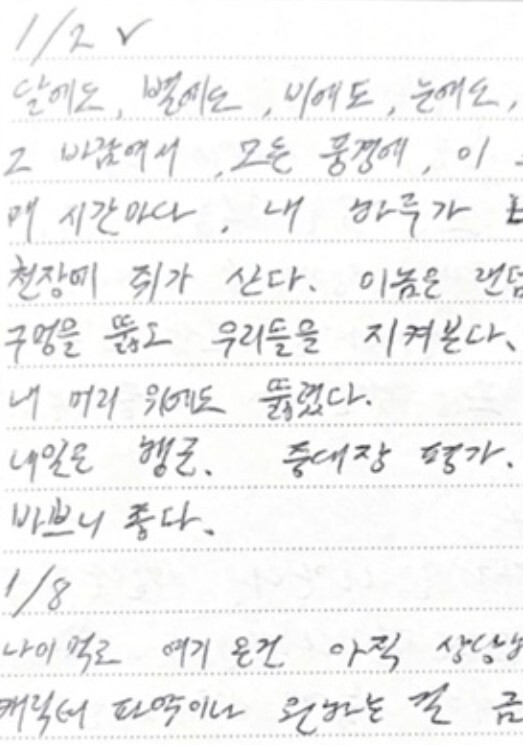 1/2 ✓
달에도, 별에도, 비에도, 눈에도,
그 바람에서, 모든 풍경에, 이
매 시간마다, 내 하루가
천장에 쥐가 산다. 이놈은 랜덤
구멍을 뚫고 우리들을 지켜본다.
내 머리 위에도 뚫렸다.
내일은 행군. 중대장 평가.
바쁘니 좋다.
1/8
나이먹고 여기 온건 아직
캐릭터 파악이나 원하는 걸